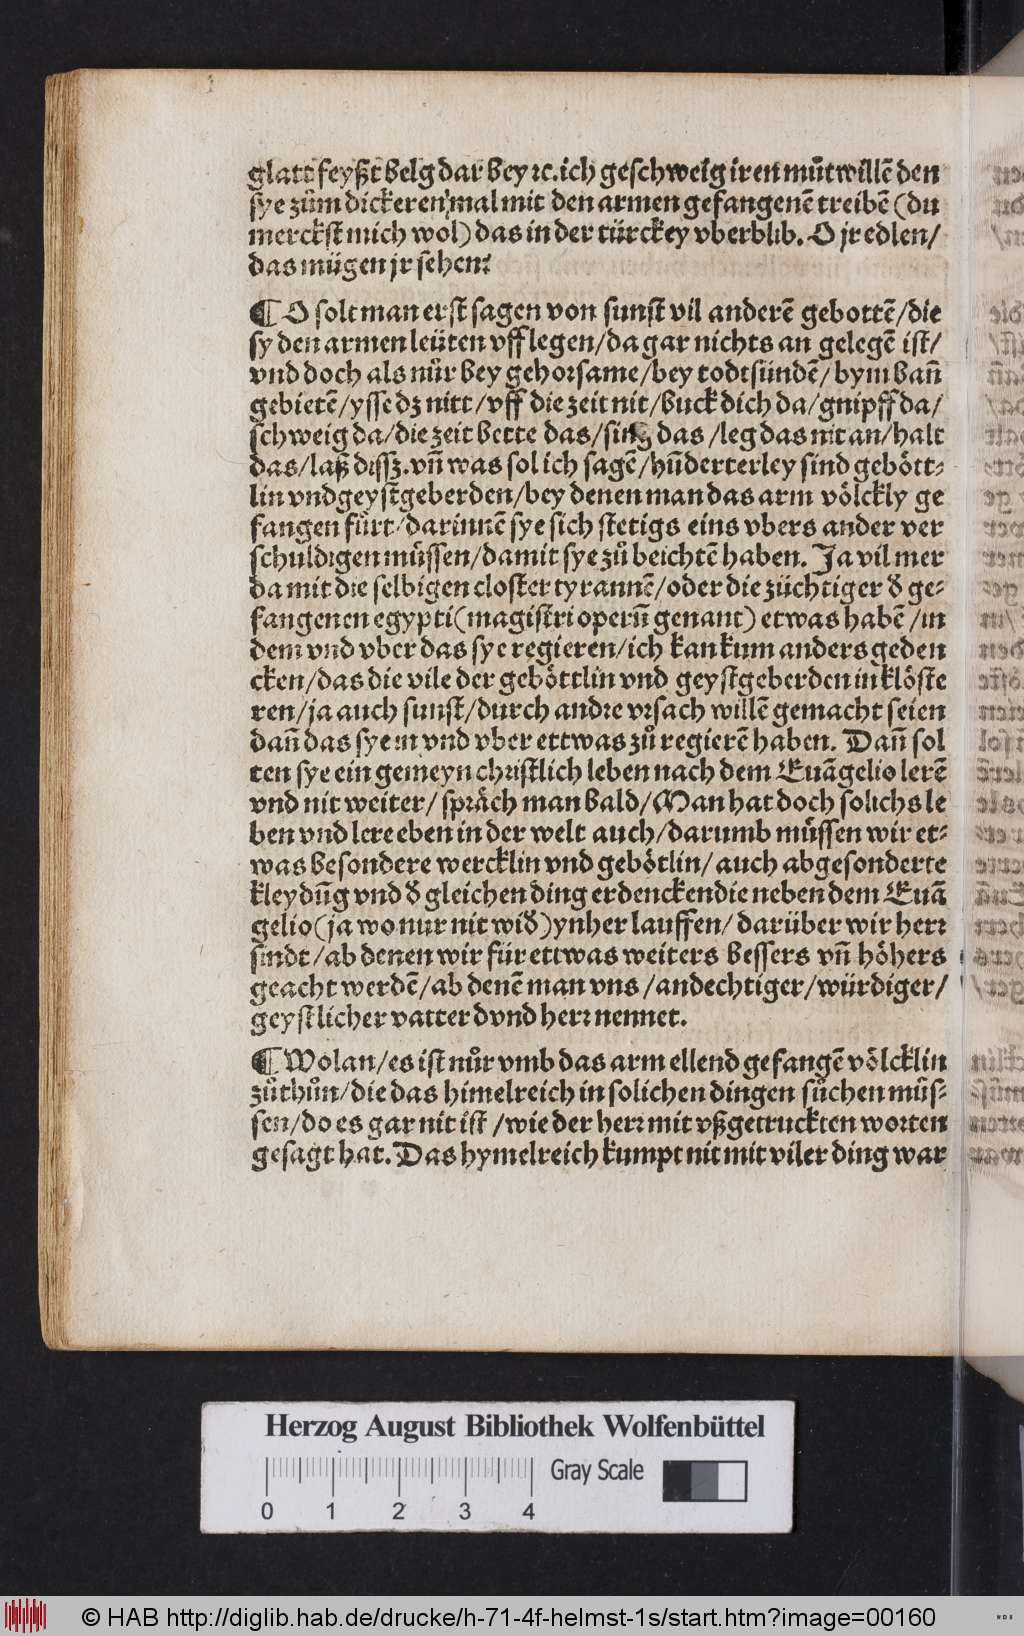 glatt feyßt belg dar bey ꝛc. ich geschweig iren muͦtwillẽ den
sye zuͦm dickeren mal mit den armen gefangenẽ treibẽ (du
merckst mich wol) das in der türckey vberblib. O jr edlen/
das mügen jr sehen:
¶ O solt man erst sagen von sunst vil anderẽ gebottẽ/die
sy den armen leüten vff legen/da gar nichts an gelegẽ ist/
vnd doch als nuͦr bey gehorsame/bey todtsündẽ/bym bañ
gebietẽ/ysse dz nitt/vff die zeit nit/buck dich da/gnipff da/
schweig da/die zeit bette das/sing das /leg das nit an/halt
das/laß disz. vñ was sol ich sagẽ/hũderterley sind geboͤtt⸗
lin vnd geystgeberden/bey denen man das arm voͤlckly ge
fangen fuͤrt/darinnẽ sye sich stetigs eins vbers ander ver
schuldigen muͤssen/damit sye zuͦ beichtẽ haben. Ja vil mer
da mit die selbigen closter tyrannẽ/oder die züchtiger đ ge⸗
fangenen egypti (magistri operũ genant) etwas habẽ /in
dem vnd vber das sye regieren/ich kan kum anders geden
cken/das die vile der geboͤttlin vnd geystgeberden in kloͤste
ren/ja auch sunst/durch andre vrsach willẽ gemacht seien
dañ das sye in vnd vber ettwas zuͦ regierẽ haben. Dañ sol
ten sye ein gemeyn christlich leben nach dem Euãgelio lerẽ
vnd nit weiter/ spraͤch man bald/Man hat doch solichs le
ben vnd lere eben in der welt auch/darumb muͤssen wir et⸗
was besondere wercklin vnd geboͤtlin/ auch abgesonderte
kleydũg vnd đ gleichen ding erdencken die neben dem Euã
gelio (ja wo nur nit wiđ) ynher lauffen/ darüber wir herꝛ
sindt/ab denen wir für ettwas weiters bessers vñ hoͤhers
geacht werdẽ/ab denẽ man vns /andechtiger/würdiger/
geystlicher vatter vnd herꝛ nennet.
¶ Wolan/es ist nuͦr vmb das arm ellend gefangẽ voͤlcklin
zuͦthuͦn/die das himelreich in solichen dingen suͦchen muͤs⸗
sen/do es gar nit ist /wie der herꝛ mit vßgetruckten worten
gesagt hat. Das hymelreich kumpt nit mit viler ding war
Herzog August Bibliothek Wolfenbüttel
Gray Scale
0 1 2 3 4
© HAB http://diglib.hab.de/drucke/h-71-4f-helmst-1s/start.htm?image=00160